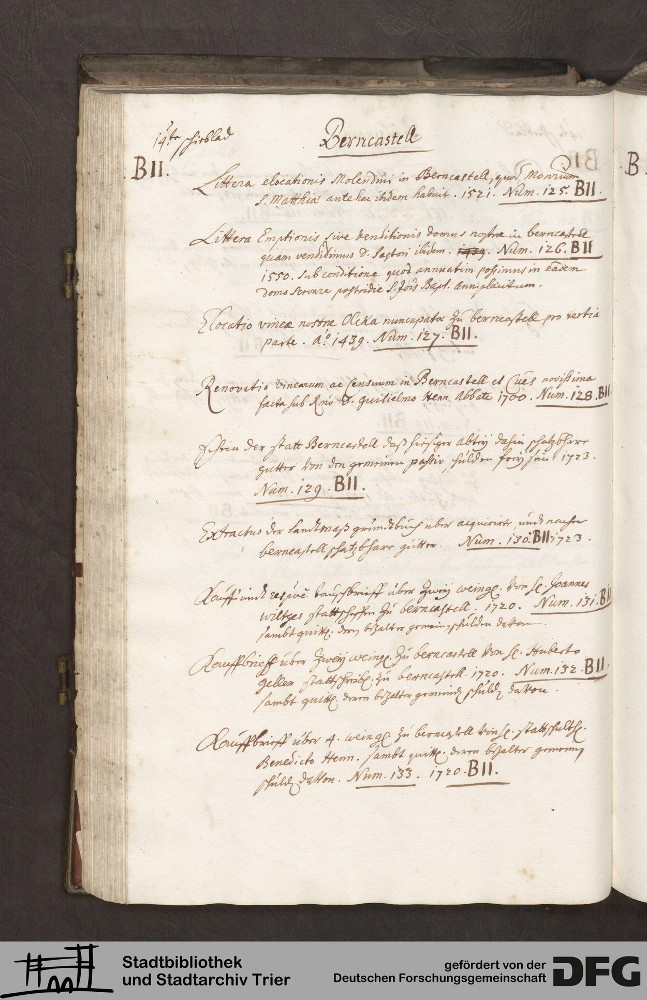 14te schiblad
Berncastell
BII.
Littera elocationis Molendini in Berncastell, quod Monrium
S. Matthiæ antehac ibidem habuit. 1521. Num. 125. BII.
Littera Emptionis sive venditionis domus nostræ in berncastell
quam vendidimus D. Pastori ibidem. 1439. Num. 126. BII
1550. sub conditione quod annuatim possimus in eadem
domo servare postridie S. Jois Bapt. anniplacitum.
Elocatio vineæ nostræ Olcka nuncupatæ zu berncastell pro tertia
parte. Aº 1439. Num. 127. BII.
Renovatio vinearum ac censuum in Berncastell et Cues novissima
facta sub Rmo D. Guilielmo Henn Abbate 1700. Num. 128. BII.
der statt Berncastell daß hiesiger abtey dahin schatzbahre
gütter von den gemeinen passiv schulden frey seyn 1723.
Num. 129. BII.
Extractus der landtmaß grundtbuch uber acquirirte, undt nacher
berncastell schatzbahre gütter. Num. 130. BII 1723.
Kauff undt tauschbrieff über zwey weing. von Joannes
wiltges stattscheffen zu berncastell. 1720. Num. 131. BII
sambt quitt. deren bezalter gemein schulden
Kauffbrieff über zwey weing. zu berncastell von Huberto
Geller stattschr. zu berncastell. 1720. Num. 132. BII.
sambt quitt. deren bezalter gemeind schuld
Kauffbrieff über 4. weing. zu berncastell von stattschult.
Benedicto Henn. sambt quitt. deren bezalter gemein
schuld Num. 133. 1720. BII.
B
Stadtbibliothek
und Stadtarchiv Trier
gefördert von der
Deutschen Forschungsgemeinschaft
DFG